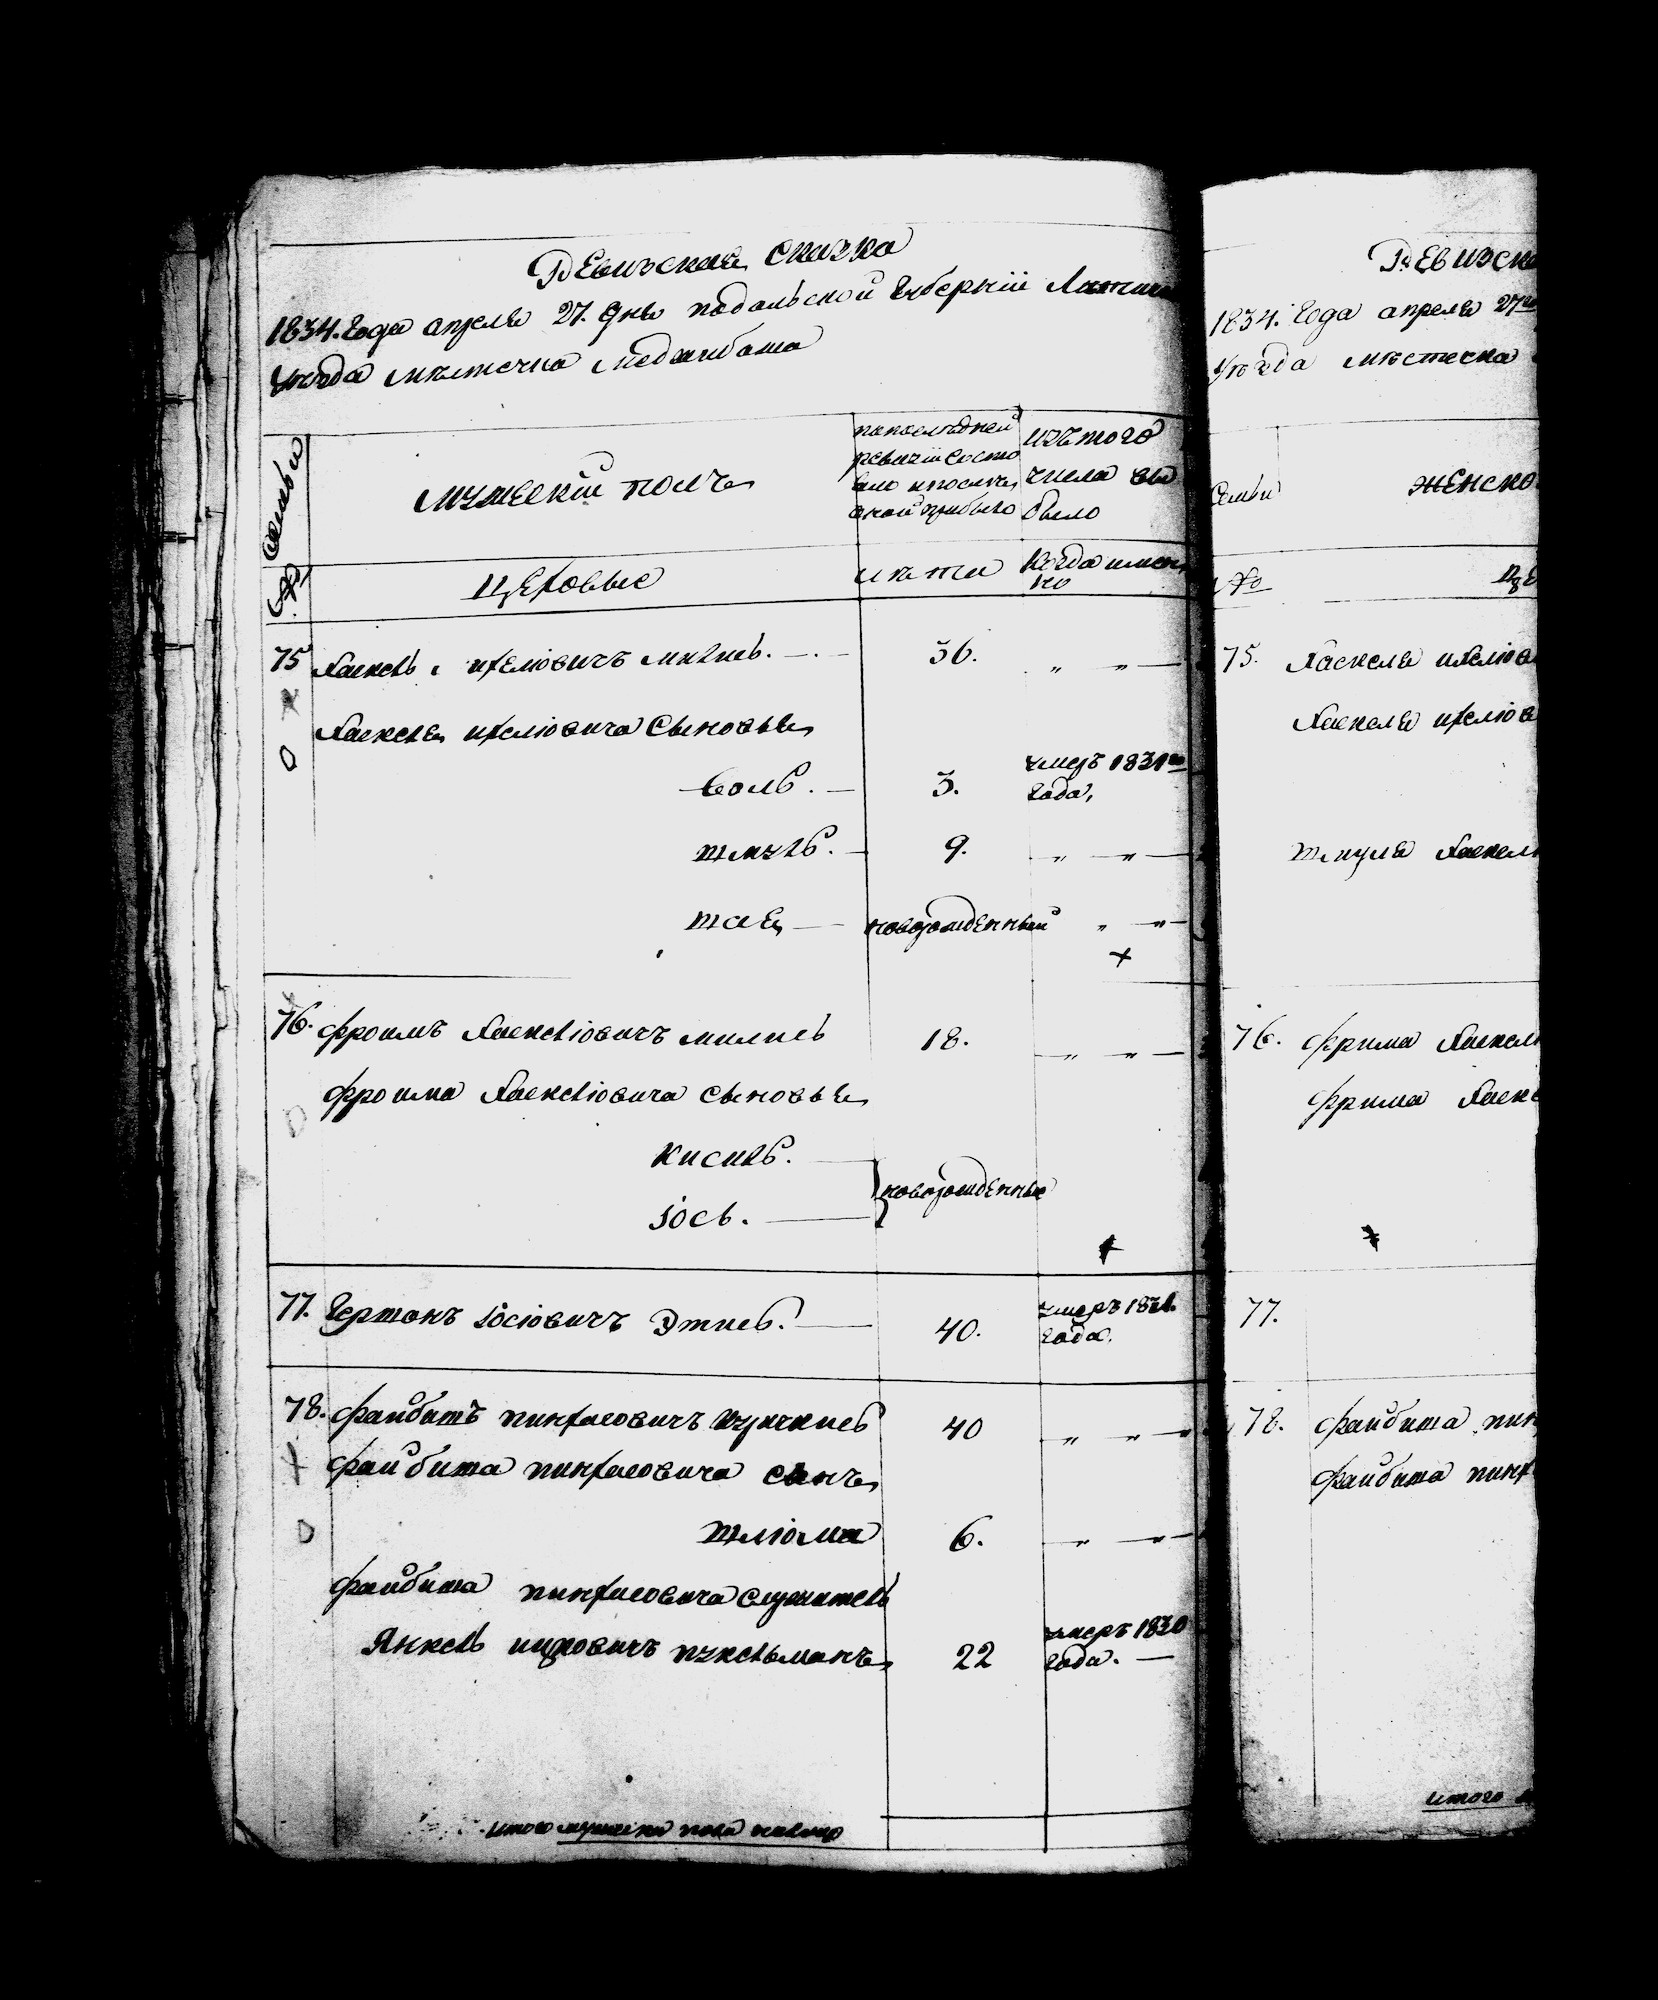 Ревизская сказка
1834. Года апреля 27. дня подольской Губернiи Летич
Уѣзда мѣстечка меджибожа
№ семьи
мужескiй полъ
попоследней
ревизiи состо
яло ипослѣ
оной прибыло
изътого
числа вы
было
Цеховые
лѣта
Когда имен
но
75 Хаскель ихелiовичъ 36.
Хаскеля ихелiовича Сыновья
воль. 3. умеръ 1831го года,
шмуль. 9.
шая новорожденный
76. Фроимъ Хаскелiовичъ 18.
Фроима Хаскелiовича Сыновья
кисиль.
iось. новорожденные
77. Гершонъ iосiовичъ 40. умеръ года.
78. Файбишъ пинхасовичъ 40
Файбиша пинхасовича сынъ
шлiома 6.
Файбиша пинхасовича служитель
Янкель 22 умеръ 1830 года.
итого мужеска пола налицо
Ревизск
1834. Года апреля 27го
Уѣзда мѣстечка
семьи
женско
№
це
75. Хаскеля ихелiов
Хаскеля ихелiов
шмуля Хаскел
76. Фрима Хаскел
Фрима Хаск
77.
78. Файбиша пин
Файбиша пинх
итого